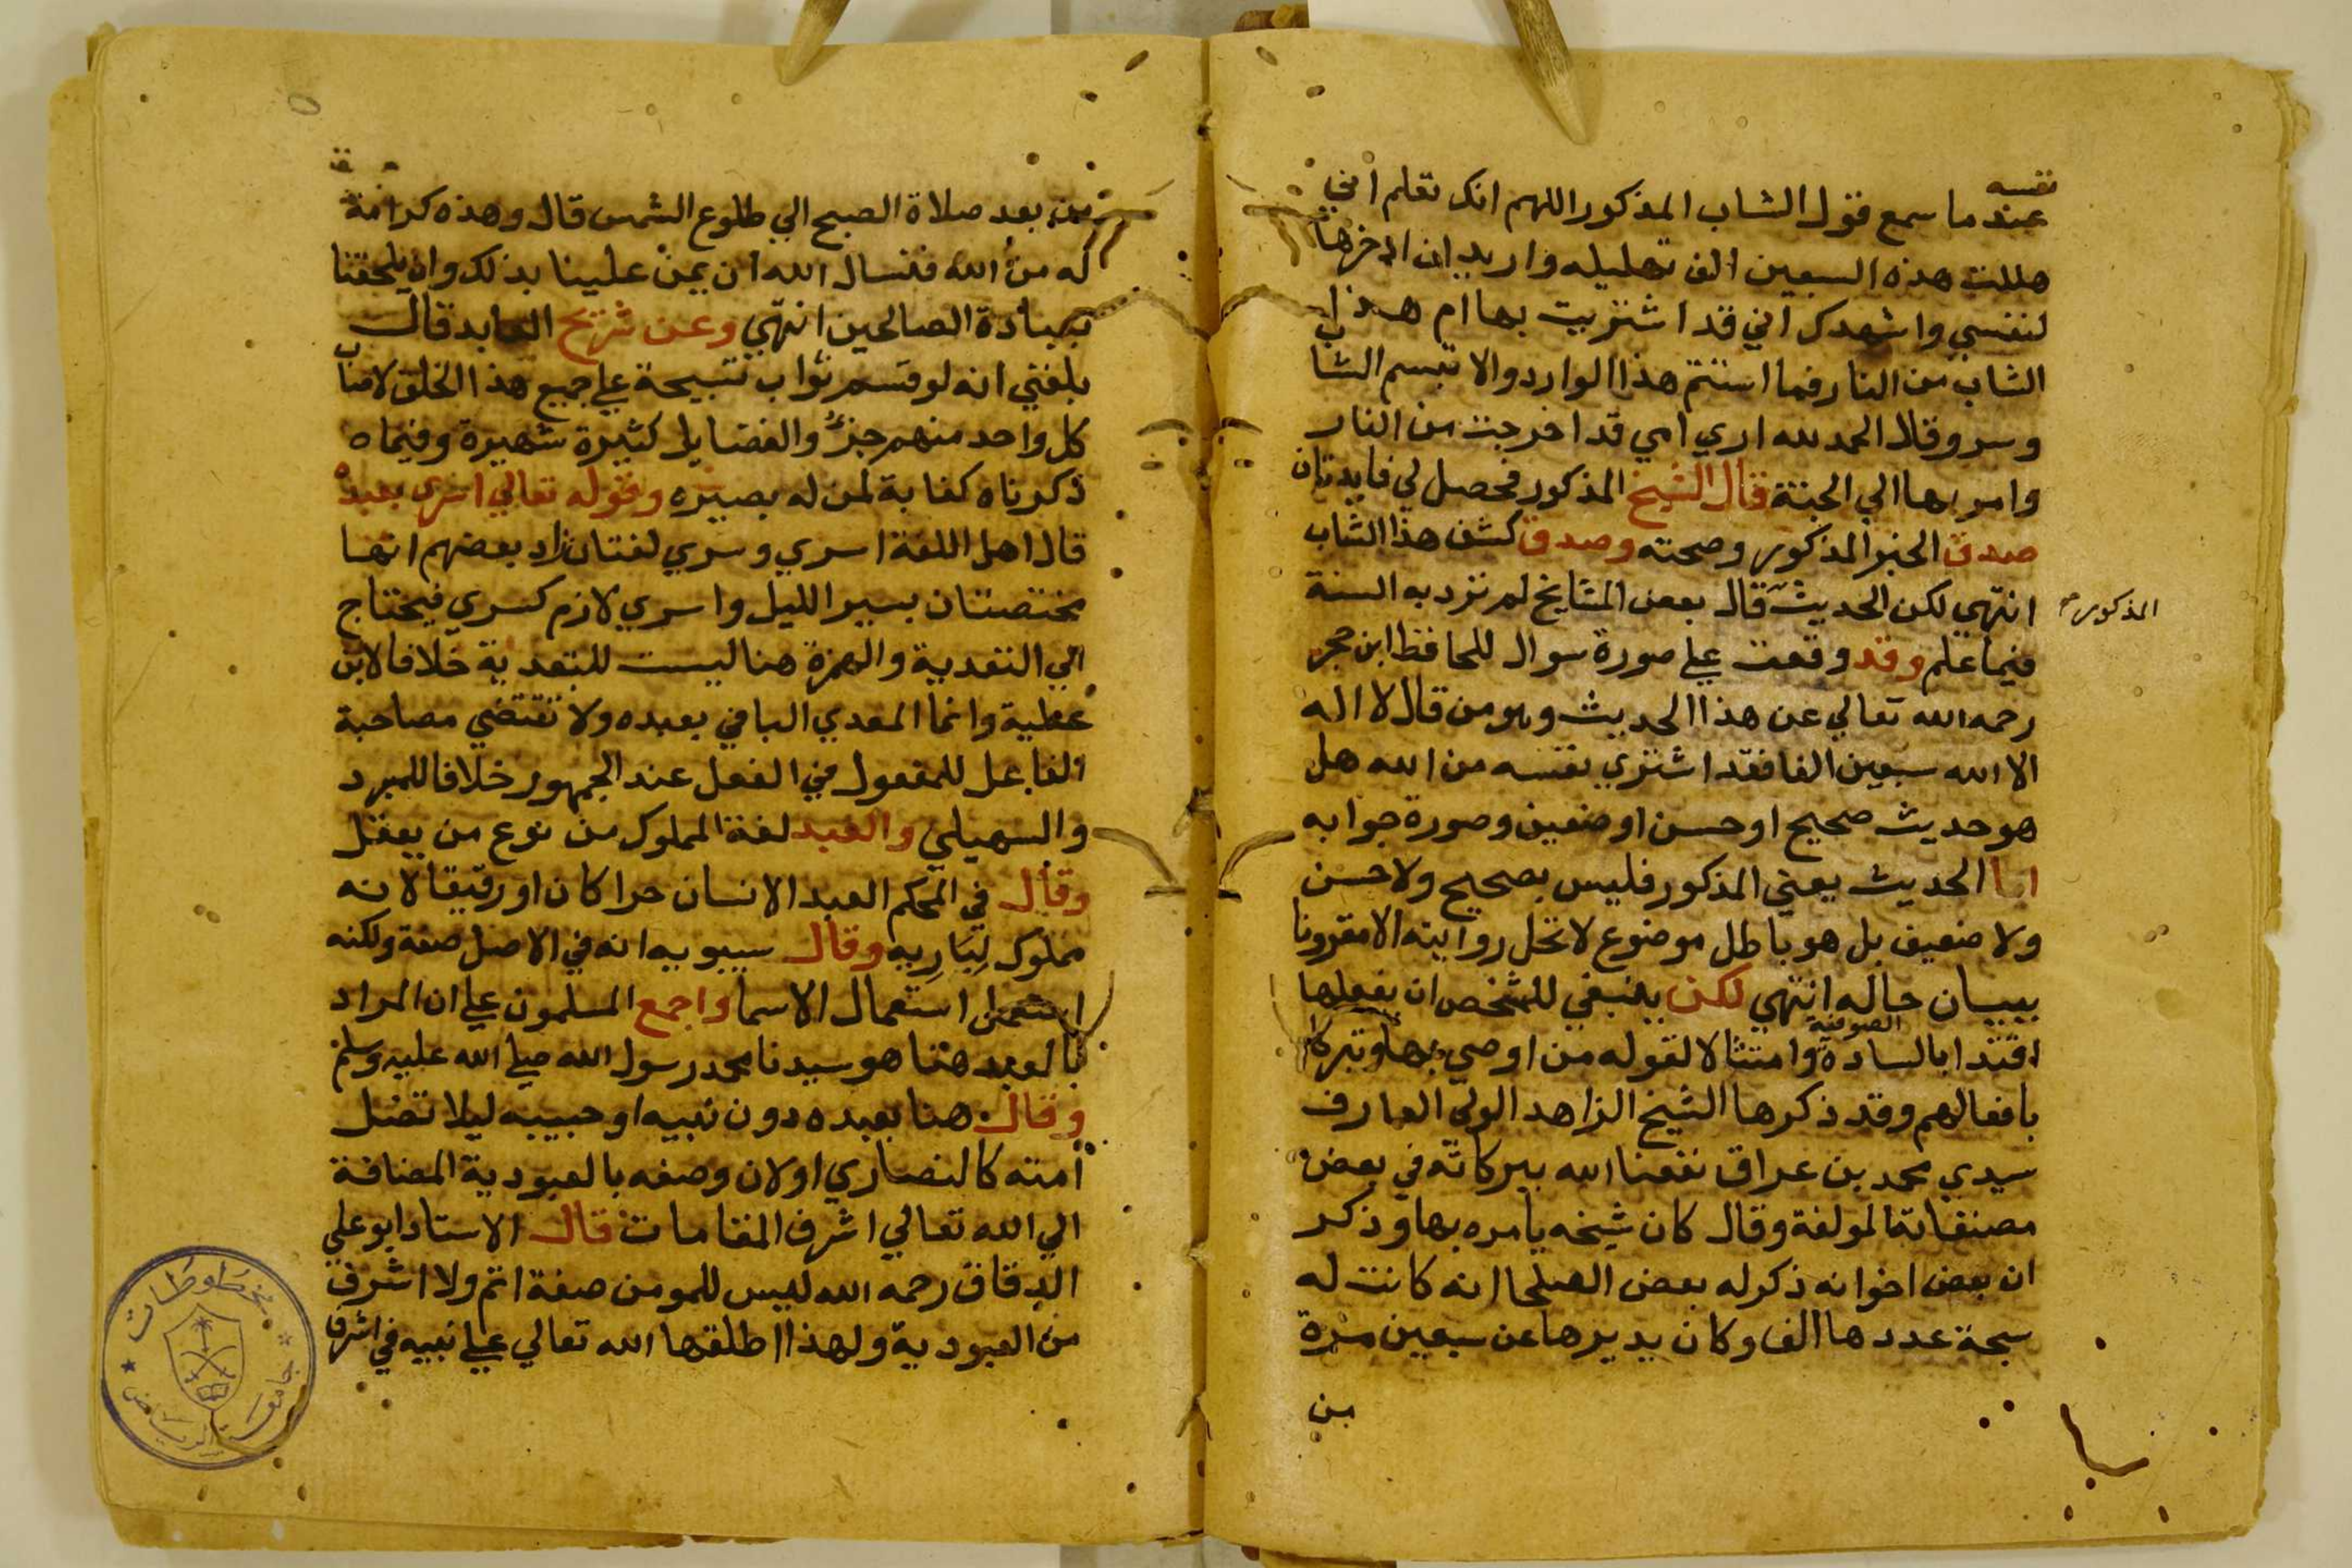 نفسه
عندما سمع قول الشاب المذكور اللهم انك تعلم اني
هللت هذه السبعين الف تهليله واريد ان ادخرها
لنفسي واشهدك اني قد اشتريت بها ام هذا
الشاب من النار فما استتم هذا الوارد والا تبسم الشاب
وسر وقال الحمد لله اري امي قد اخرجت من النار
وامر بها الي الجنة قال الشيخ المذكور فحصل لي فايدتان
صدق الخبر المذكور وصحته وصدق كشف هذا الشاب
انتهي لكن الحديث قال بعض المشايخ لم ترد به السنة
المذكور
فيما علم وقد وقفت علي صورة سوال للحافظ ابن حجر
رحمه الله تعالي عن هذا الحديث وهو من قال لا اله
الا الله سبعين الفا فقد اشتري نفسه من الله هل
هو حديث صحيح او حسن او ضعيف وصورة جوابه
اما الحديث يعني المذكور فليس بصحيح ولا حسن
ولا ضعيف بل هو باطل موضوع لا تحل روايته الا مقرونا
ببيان حاله انتهي لكن ينبغي للشخص ان يفعلها
اقتدا بالسادة الصوفية وامتثالا لقوله من اوصي بها وتبركا
بافعالهم وقد ذكرها الشيخ الزاهد الولي العارف
سيدي محمد بن عراق نفعنا الله ببركاته في بعض
مصنفاته المولفة وقال كان شيخه يامره بها وذكر
ان بعض اخوانه ذكر له بعض الصلحا انه كانت له
سبحة عددها الف وكان يديرها عن سبعين مرة
من
من بعد صلاة الصبح الي طلوع الشمس قال وهذه كرامة
له من الله فنسال الله ان يمن علينا بذلك وان يلحقنا
بعبادة الصالحين انتهي وعن شريح العابد قال
بلغني انه لو قسم ثواب تسبيحة علي جميع هذا الخلق لاصاب
كل واحد منهم جزؤ والفضايل كثيرة شهيرة وفيما
ذكرناه كفاية لمن له بصيره وقوله تعالي اسري بعبده
قال اهل اللغة اسري وسري لغتان زاد بعضهم انها
مختصتان بسير الليل واسري لازم كسري فيحتاج
الي التعدية والهمزة هنا ليست للتعدية خلافا لابن
عطية وانما المعدي الباء في بعبده ولا تقتضي مصاحبة
الفاعل للمفعول في الفعل عند الجمهور خلافا للمبرد
والسهيلي والعبد لغة المملوك من نوع من يعقل
وقال في المحكم العبد الانسان حرا كان او رقيقا لانه
مملوك لباريه وقال سيبويه انه في الاصل صفة ولكنه
استعمل استعمال الاسما واجمع المسلمون علي ان المراد
بالعبد هنا هو سيدنا محمد رسول الله صلي الله عليه وسلم
وقال هنا بعبده دون نبيه او حبيبه ليلا تضل
امته كالنصاري او لان وصفه بالعبودية المضافة
الي الله تعالي اشرف المقامات قال الاستاد ابو علي
الدقاق رحمه الله ليس للمومن صفة اتم ولا اشرف
من العبودية ولهذا اطلقها الله تعالي علي نبيه في اشرف
مخطوطات
جامعة الرياض